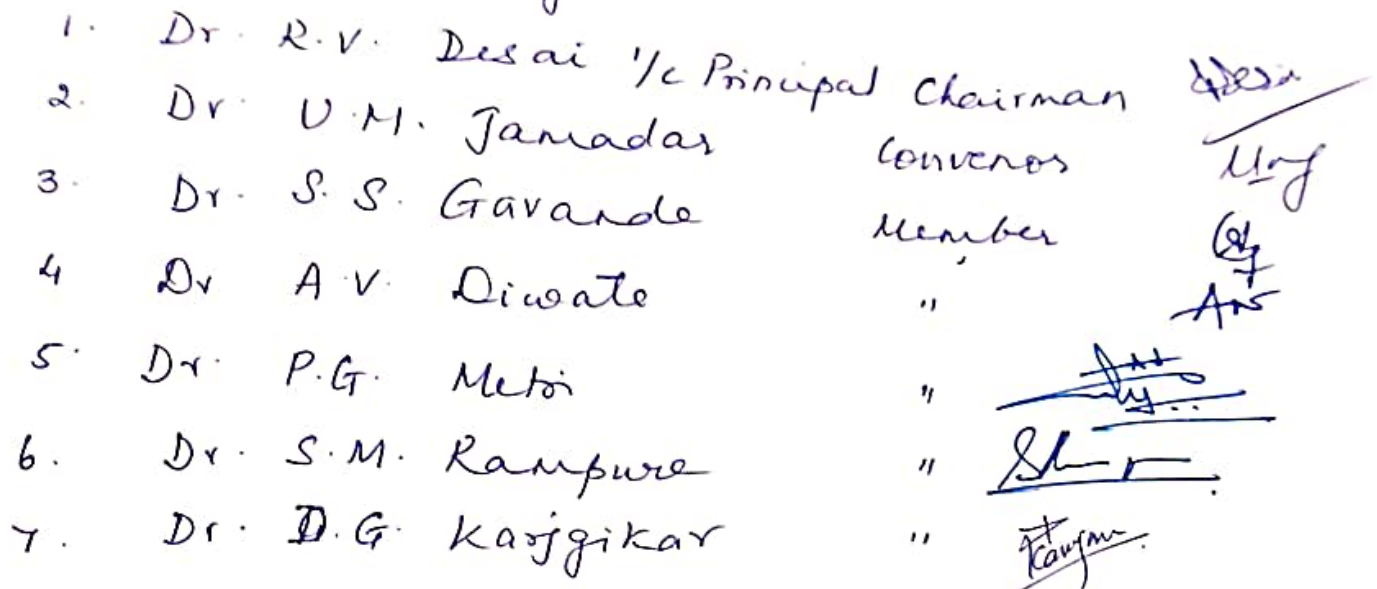 1. Dr. R.V. Desai I/c Principal Chairman Desai
2. Dr U.M. Jamadar Convenor
3. Dr. S.S. Gavande Member
4 Dr A.V. Diwate "
5. Dr. P.G. Metri "
6. Dr. S.M. Rampure "
7. Dr. D.G. Karjgikar "